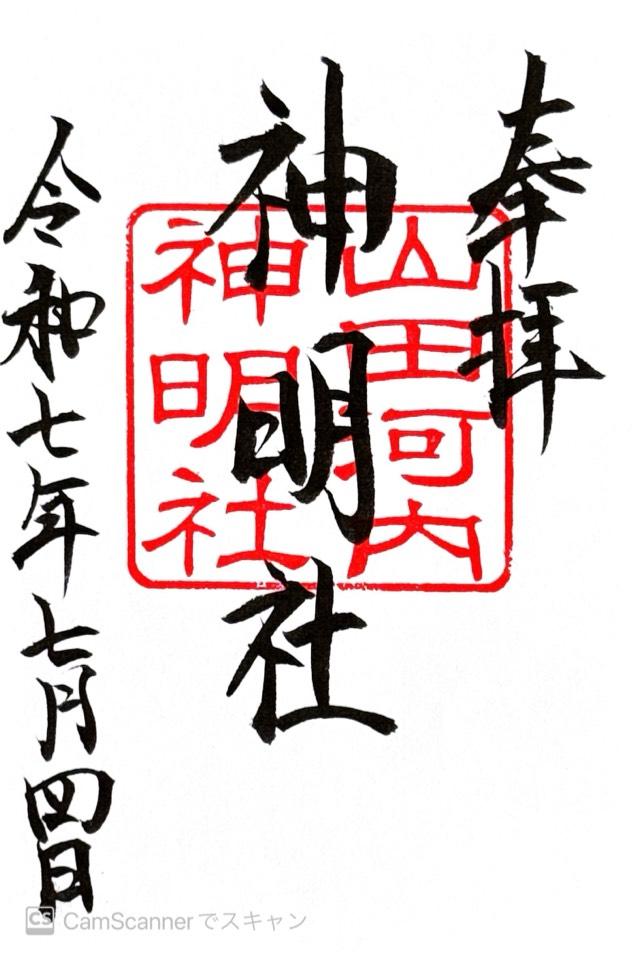 奉拝
神明社
山田河内
神明社
令和七年七月四日
CS CamScannerでスキャン